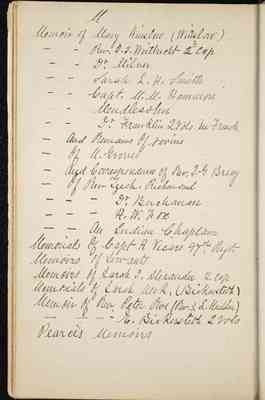 M
Memoir of Mary Winslow (Winslow)
- - Rev. 2 cop
- - Dr. Milner
- - Sarah L. H. Smith
- - Capt. M. M. Hammond
- - Mendlesohn
- - Dr. Franklin 2 Vols in French
- And Remains Of
- Of
- And Correspondence of Rev.
- Of Rev Legh. Richmond
- - - Dr. Buchanan
- - - H. W. Fox
- - An Indian Chaplain
Memorials Of Capt H Vicars 97th Regt
Memoirs Of Servants
Memoirs of Sarah Alexander 2 cop
Memorials of Work, (Bickersteth)
Memoir of Rev Peter (Rev.
- - - E. Bickersteth 2 Vols
Pearce's Memoirs